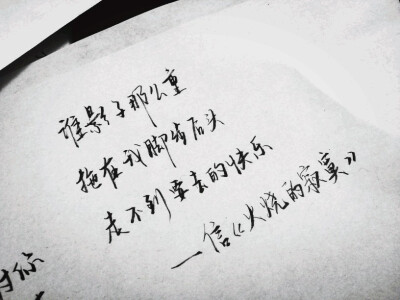 谁影子那么重
拖在我脚步后头
走不到要去的快乐
一信《火烧的寂寞》